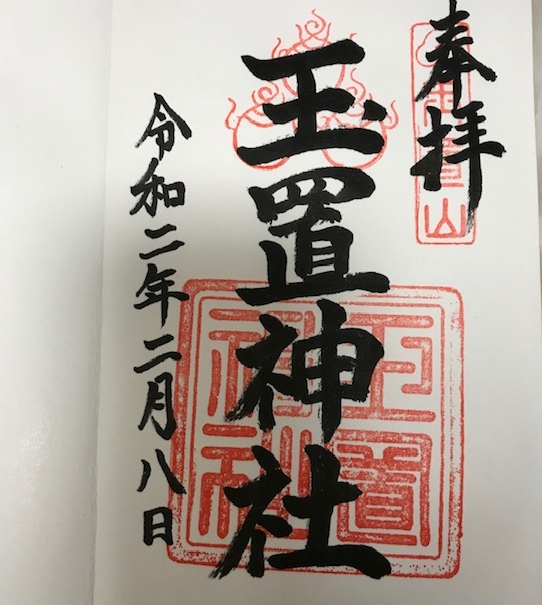 奉拝
玉置山
玉置神社
玉置神社
令和二年二月八日